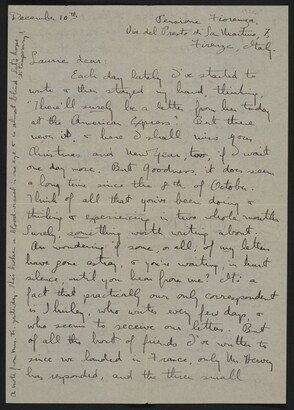 December 10th
Pensione Fiorenza,
Via del Presto di San Martino, 7,
Firenze, Italy.
Laurie dear:
Each day lately I've started to
write & then stayed my hand, thinking,
"There'll surely be a letter from her today
at the American Express!" But there
never is, & here I shall miss your
Christmas and New Year, too, if I wait
one day more. But Goodness, it does seem
a long time since the 8th of October.
Think of all that you've been doing &
thinking & experiencing in two whole months.
Surely something worth writing about.
Am wondering if some, or all, of my letters
have gone astray, & you're waiting, in hurt
silence, until you hear from me? It's a
fact that practically our only correspondent
is Shirley, who writes every few days, &
who seems to receive our letters. But
of all the host of friends I've written to
since we landed in France, only Mr Hervey
has responded, and the three small
A note from yesterday. He's broken a blood vessel in an eye & is almost blind. Let's hope
it's temporary!